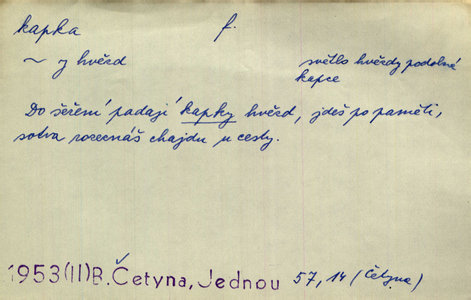 kapka f.
~ z hvězd
světlo hvězdy podobné
kapce
Do šeření padají kapky hvězd, jdeš po paměti,
sotva rozeznáš chajdu u cesty.
1953(II)B.Četyna, Jednou 57, 14 (Četyna)